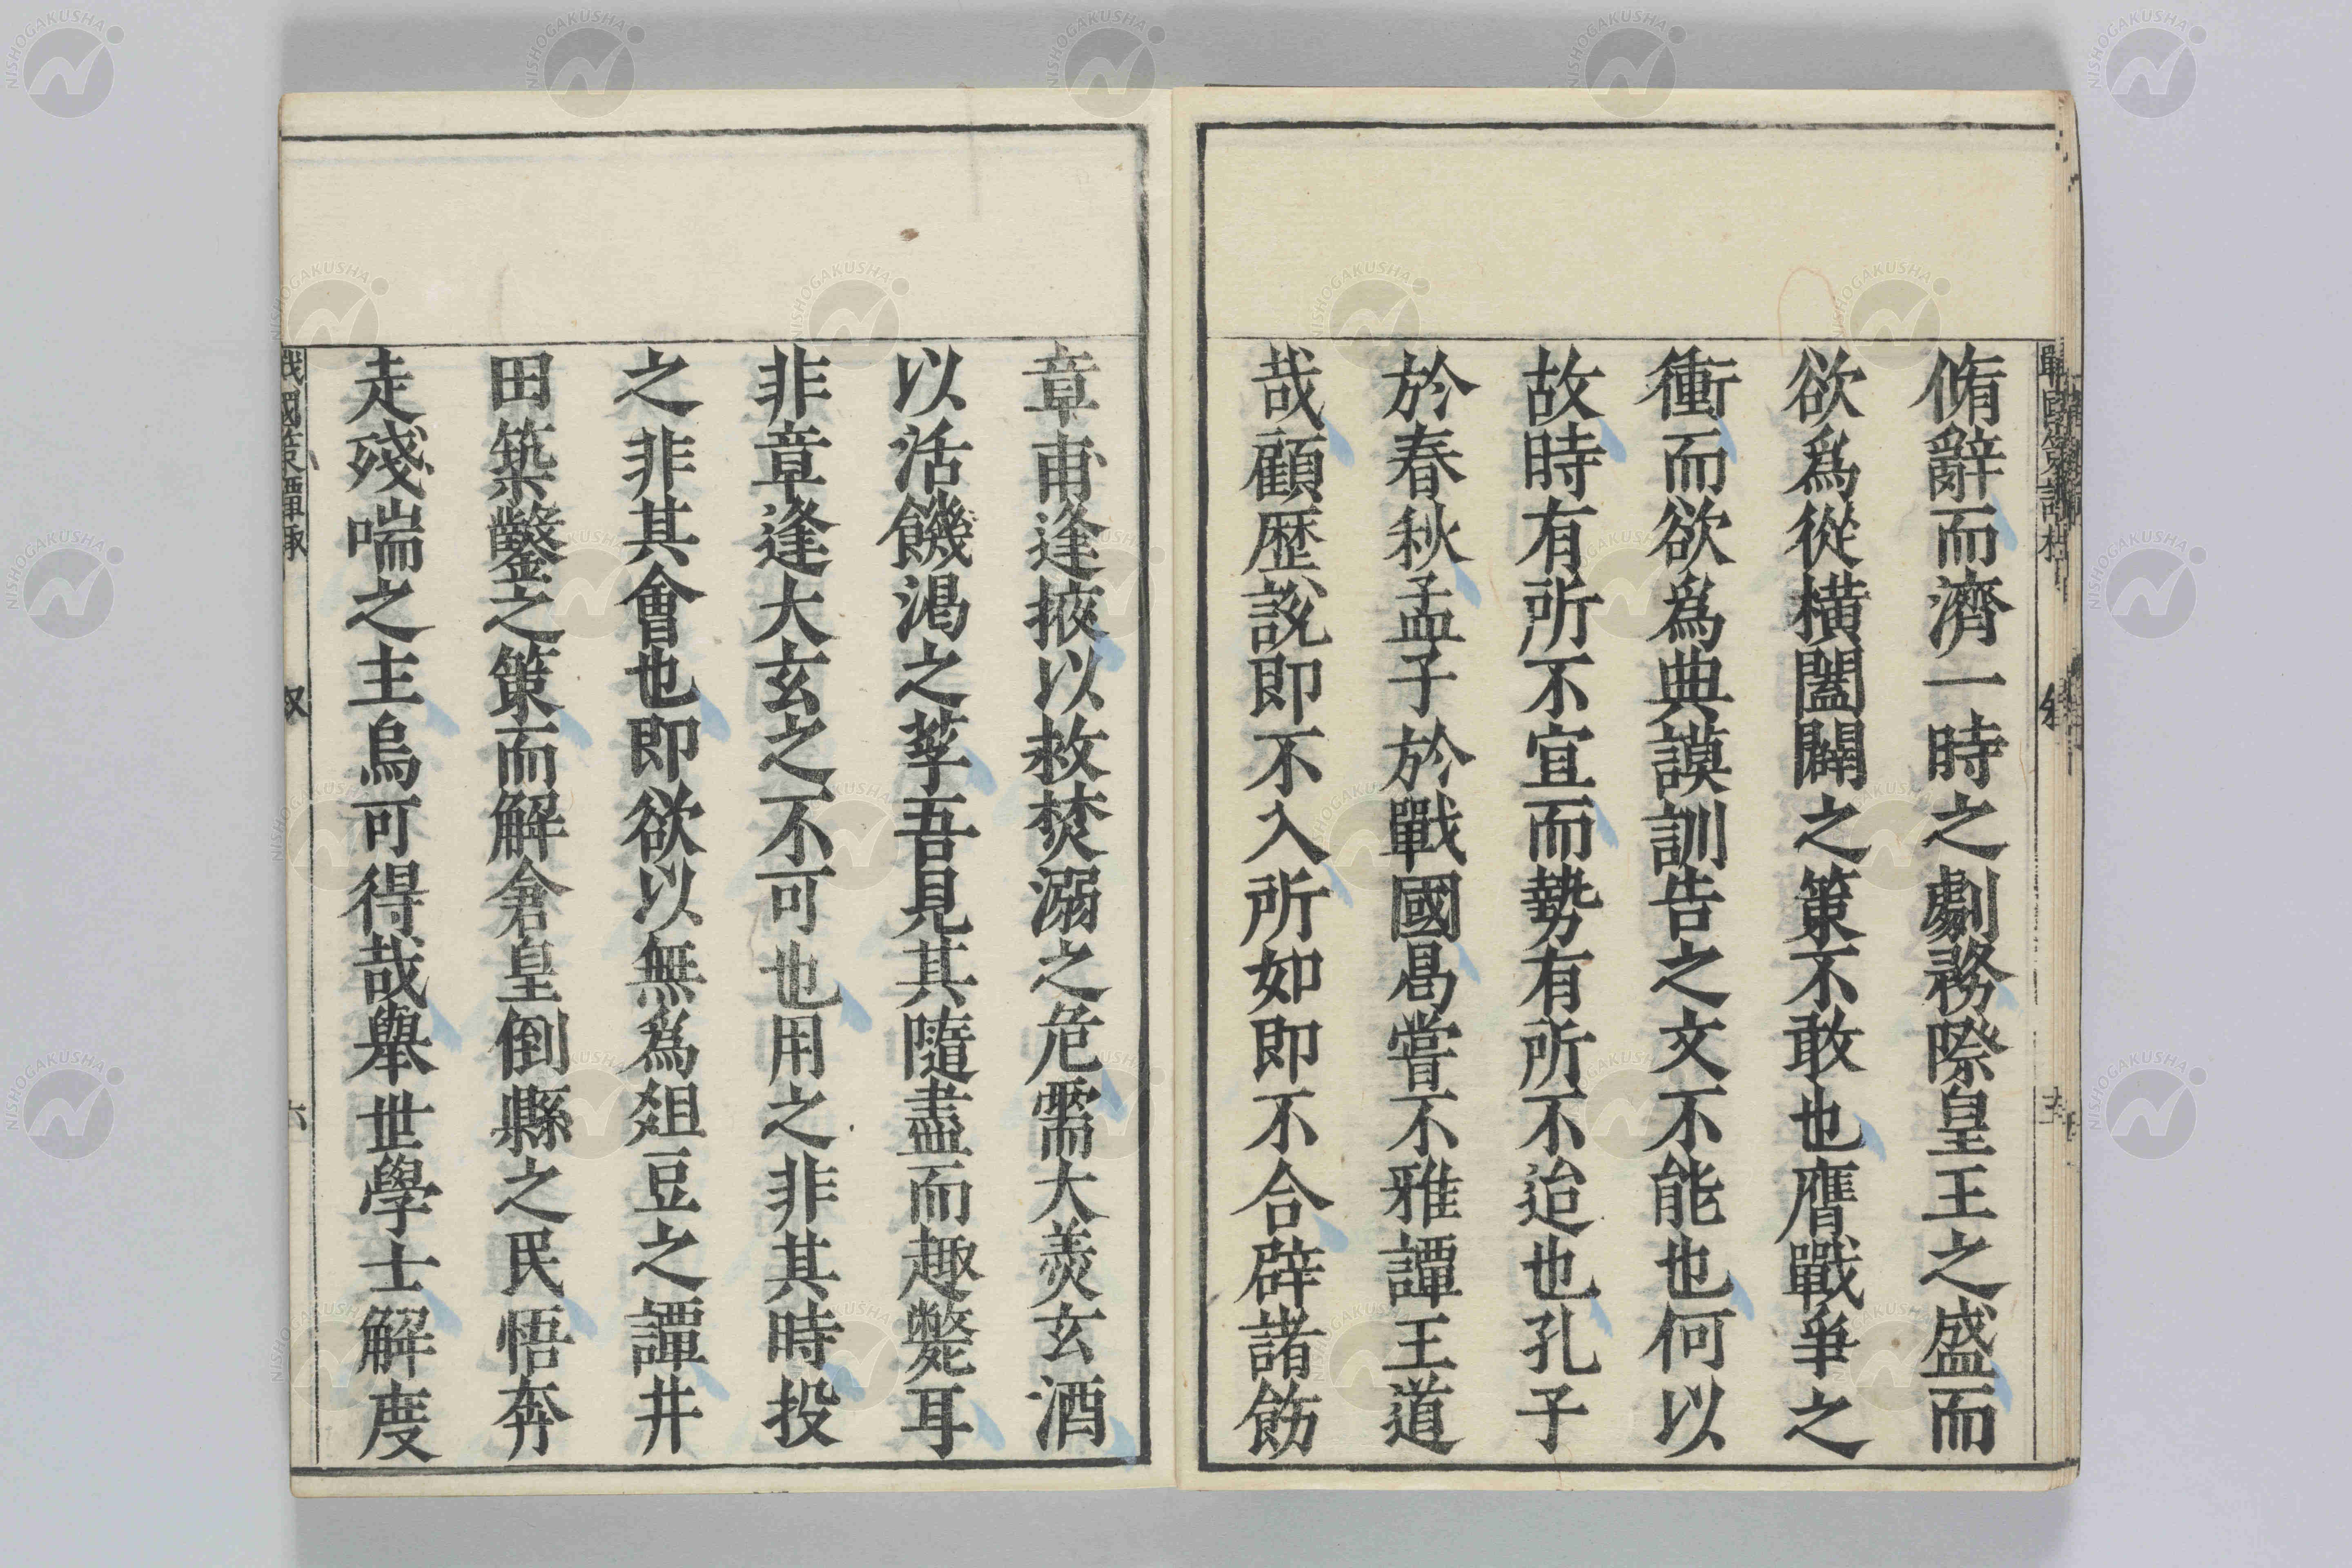 脩辭而濟一時之劇務際皇王之盛而
欲爲從橫闔闢之策不敢也膺戰爭之
衝而欲爲典謨訓告之文不能也何以
故時有所不宜而勢有所不迨也孔子
於春秋孟子於戰國曷嘗不雅譚王道
哉顧歷說即不入所如即不合辟諸飭
章甫逢掖以救焚溺之危需大羹玄酒
以活饑渴之莩吾見其隨盡而趣斃耳
非章逢大玄之不可也用之非其時投
之非其會也即欲以無爲俎豆之譚井
田築鑿之策而解倉皇倒縣之民悟奔
走殘喘之主烏可得哉舉世學士解度
叙
六
NISHOGAKUSHA